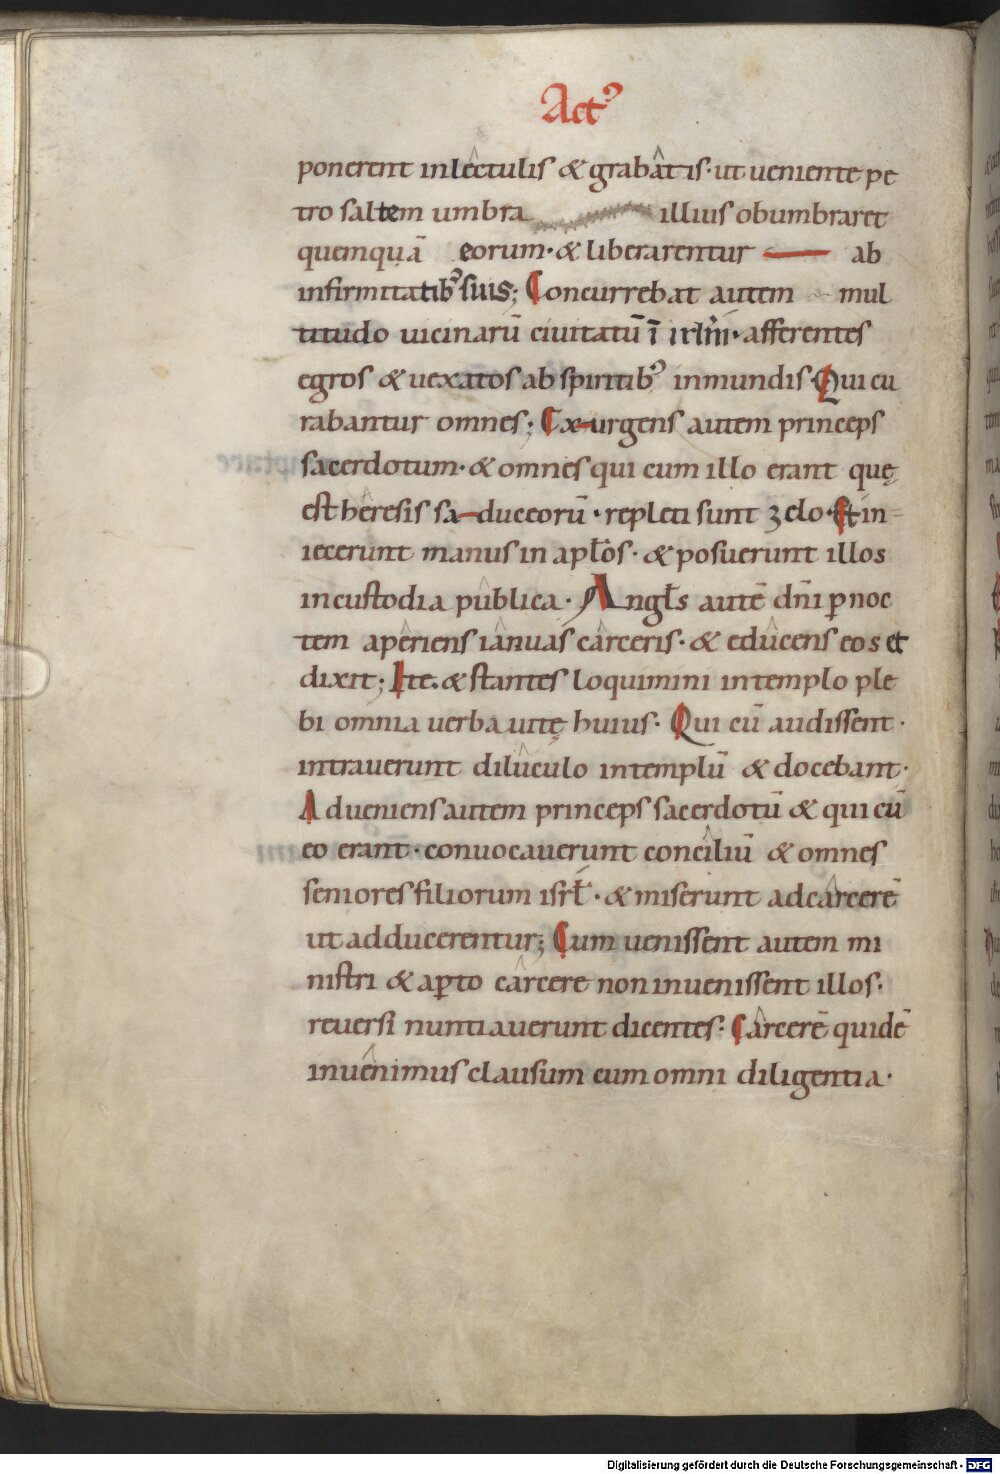 Act᾽
ponerent inlectulis & grabâtis· ut ueniente pe
tro saltem umbra illius obumbraret
quemquā eorum· & liberarentur ab
infirmitatib᾽ suis; Concurrebat autem mul
titudo uicinarū ciuitatū ī irl̄m· afferentes
egros & uexatos ab spiritib᾽ inmundis· Qui cu
rabantur omnes; Exurgens autem princeps
sacerdotum· & omnes qui cum illo erant quę
est hêresis saduceorū· repleti sunt zelo· Et in
iecerunt manus in apl̄os· & posuerunt illos
in custodia pûblica· Angl̄s autē dn̄i p̱ noc
tem apêriens iânuas cârceris· & edûcens eos et
dixit; Ite· & stantes loquimini in templo ple
bi omnia uerba uitę huius· Qui cū audissent·
intrauerunt dilûculo in templū & docebant·
Adueniens autem princeps sacerdotū & qui cū
eo erant· conuocauerunt concîliū & omnes
seniores filiorum isrl̄· & miserunt ad cârcerē
ut adducerentur; Cum uenissent autem mi
nistri & ap̱to cârcere non inuenissent illos·
reuersi nuntiauerunt dicentes· Cârcerē quidē
inuênimus clausum cum omni diligentia·
Digitalisierung gefördert durch die Deutsche Forschungsgemeinschaft - DFG